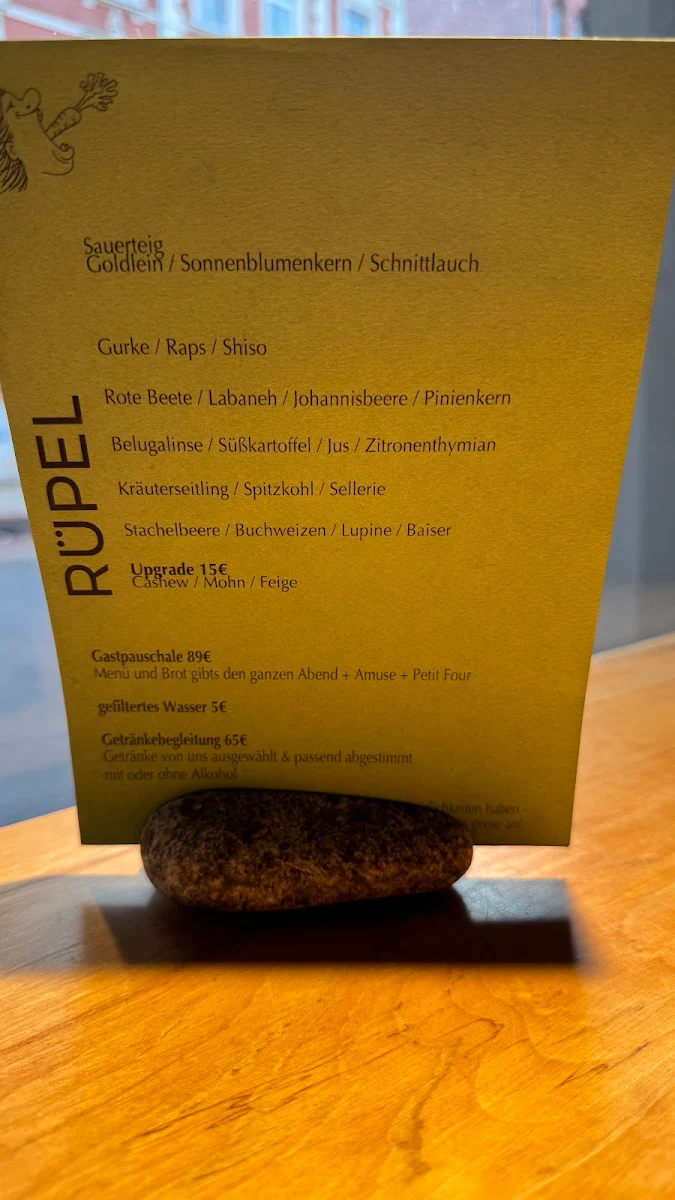 Sauerteig
Goldlein / Sonnenblumenkern / Schnittlauch
Gurke / Raps / Shiso
Rote Beete / Labaneh / Johannisbeere / Pinienkern
Belugalinse / Süßkartoffel / Jus / Zitronenthymian
Kräuterseitling / Spitzkohl / Sellerie
Stachelbeere / Buchweizen / Lupine / Baiser
RÜPEL
Upgrade 15€
Cashew / Mohn / Feige
Gastpauschale 89€
Menü und Brot gibts den ganzen Abend + Amuse + Petit Four
gefiltertes Wasser 5€
Getränkebegleitung 65€
Getränke von uns ausgewählt & passend abgestimmt
mit oder ohne Alkohol
haben -
gerne an!